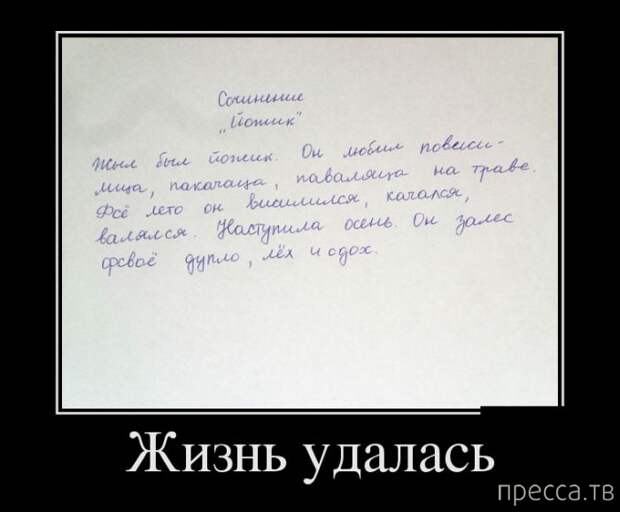 Сочинение
„Йожик"
Жыл был йожик. Он любил повеси-
мица, пакачаца, паваляца на траве.
Фсё лето он висилился, качался,
валялся. Наступила осень. Он залес
фсваё дупло, лёх и сдох.
Жизнь удалась
пресса.тв